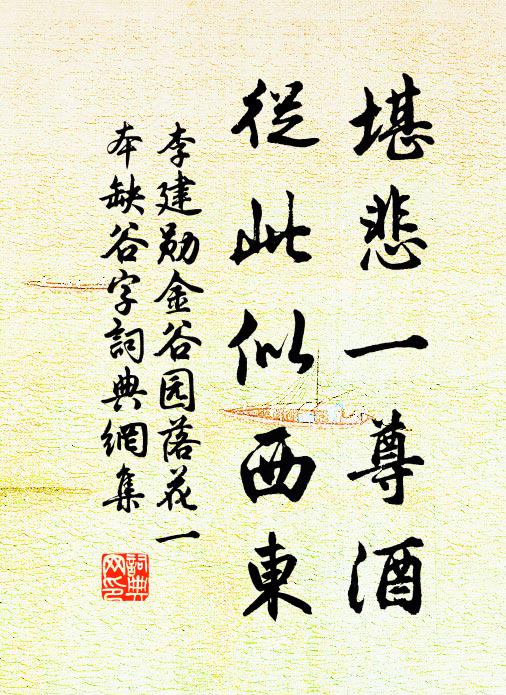 堪悲一尊酒
從此似西東
李建勋金谷园落花一
本缺谷字詞典網集
詞典
网印